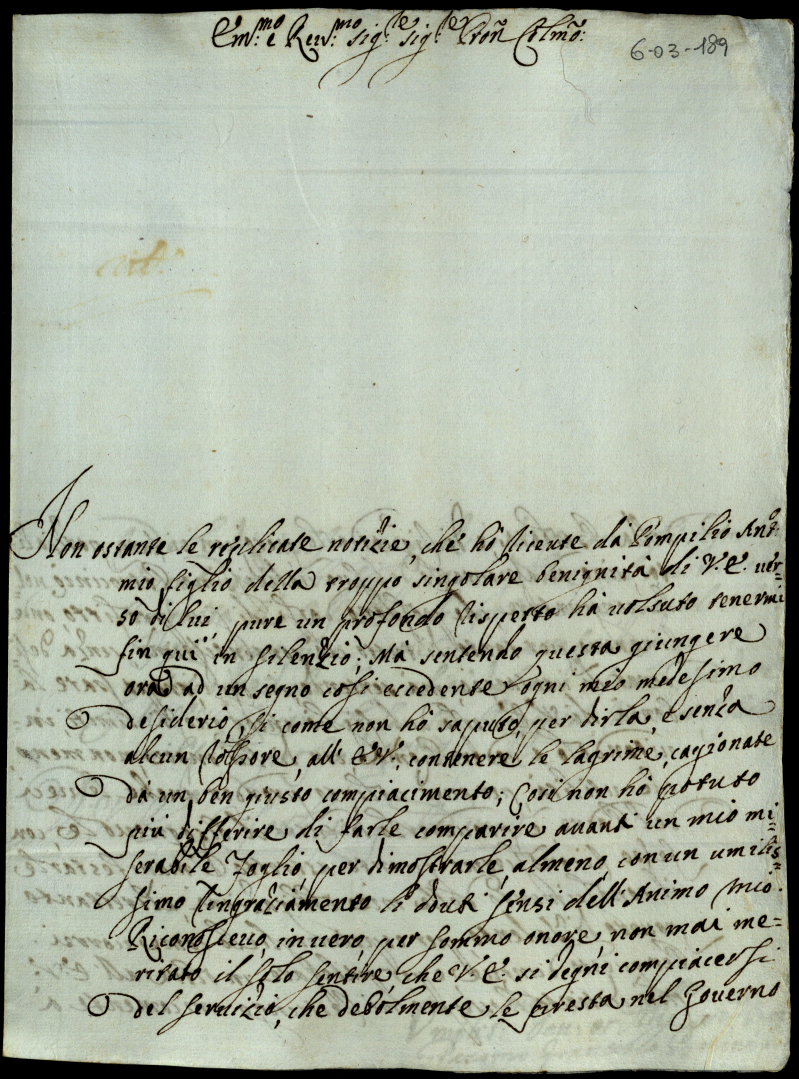 Em.mo e Reu.mo sig.re sig.re Pron Colmo:
6-03-189
Non ostante le replicate notizie, che hò riceute dà Pompilio Ant.o
mio figlio della troppo singolare benignità di V.E. uer=
so di lui, pure un profondo rispetto hà uolsuto tenermi
fin quì in silenzio; Mà sentendo questa giungere
ora ad un segno così eccedente ogni mio medesimo
desiderio, si come non hò saputo, per dirla, e senza
alcun rossore, all' E.V., contenere le lagrime, cagionate
dà un ben giusto compiacimento; Così non hò potuto
più differire di farle comparire auanti un mio mi=
serabile Foglio, per dimostrarle, almeno, con un umilis=
simo ringraziamento li douti sensi dell'Animo mio.
Riconosceuo, in uero, per sommo onore, non mai me=
ritato il solo sentire che V.E. si degni compiacersi
del seruizio, che debolmente le presta nel Gouerno